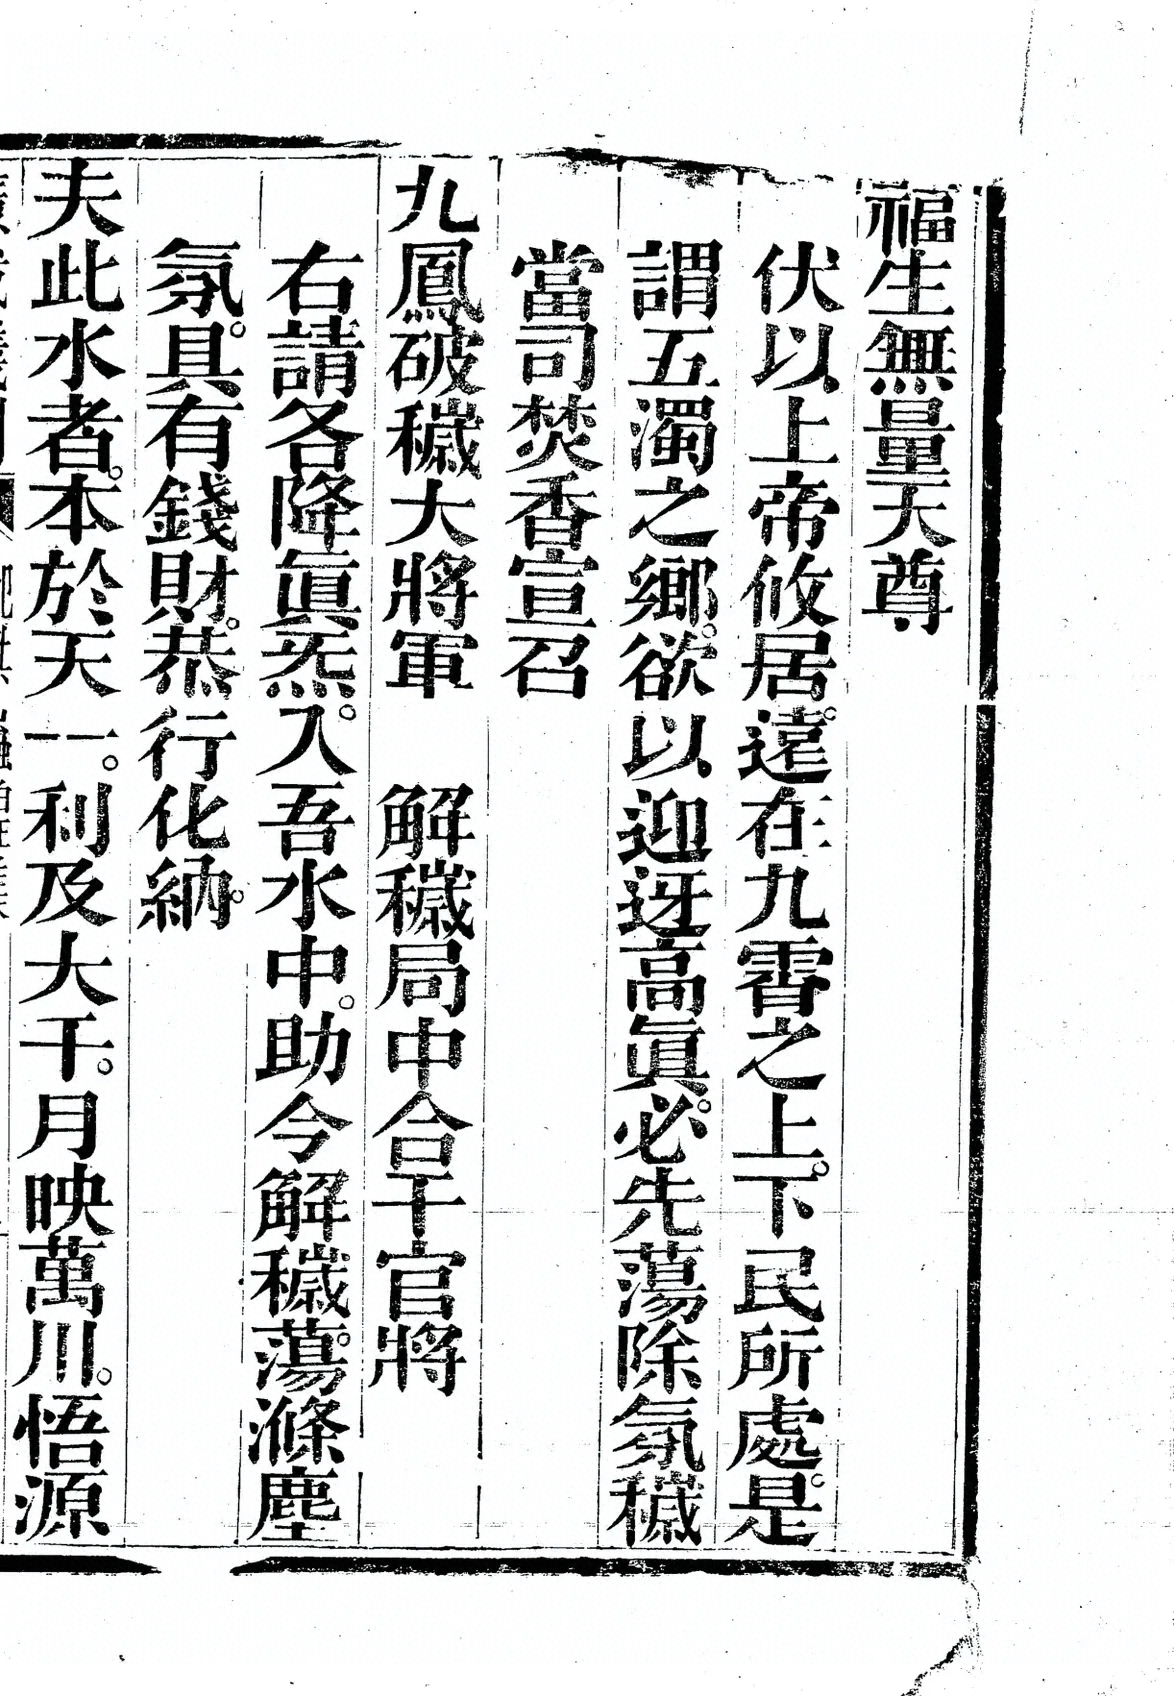 福生無量天尊
伏以上帝攸居。遠在九霄之上。下民所處。是
謂五濁之鄉。欲以迎迓高眞。必先蕩除氛穢
當司焚香宣召
九鳳破穢大將軍　解穢局中合干官將
右請各降眞炁。入吾水中。助今解穢。蕩滌塵
氛。具有錢財。恭行化納。
夫此水者。本於天一。利及大千。月映萬川。悟源